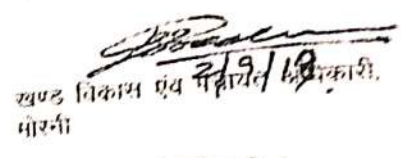 2/9/19
खण्ड विकास एंव पंचायत अधिकारी,
मोरनी